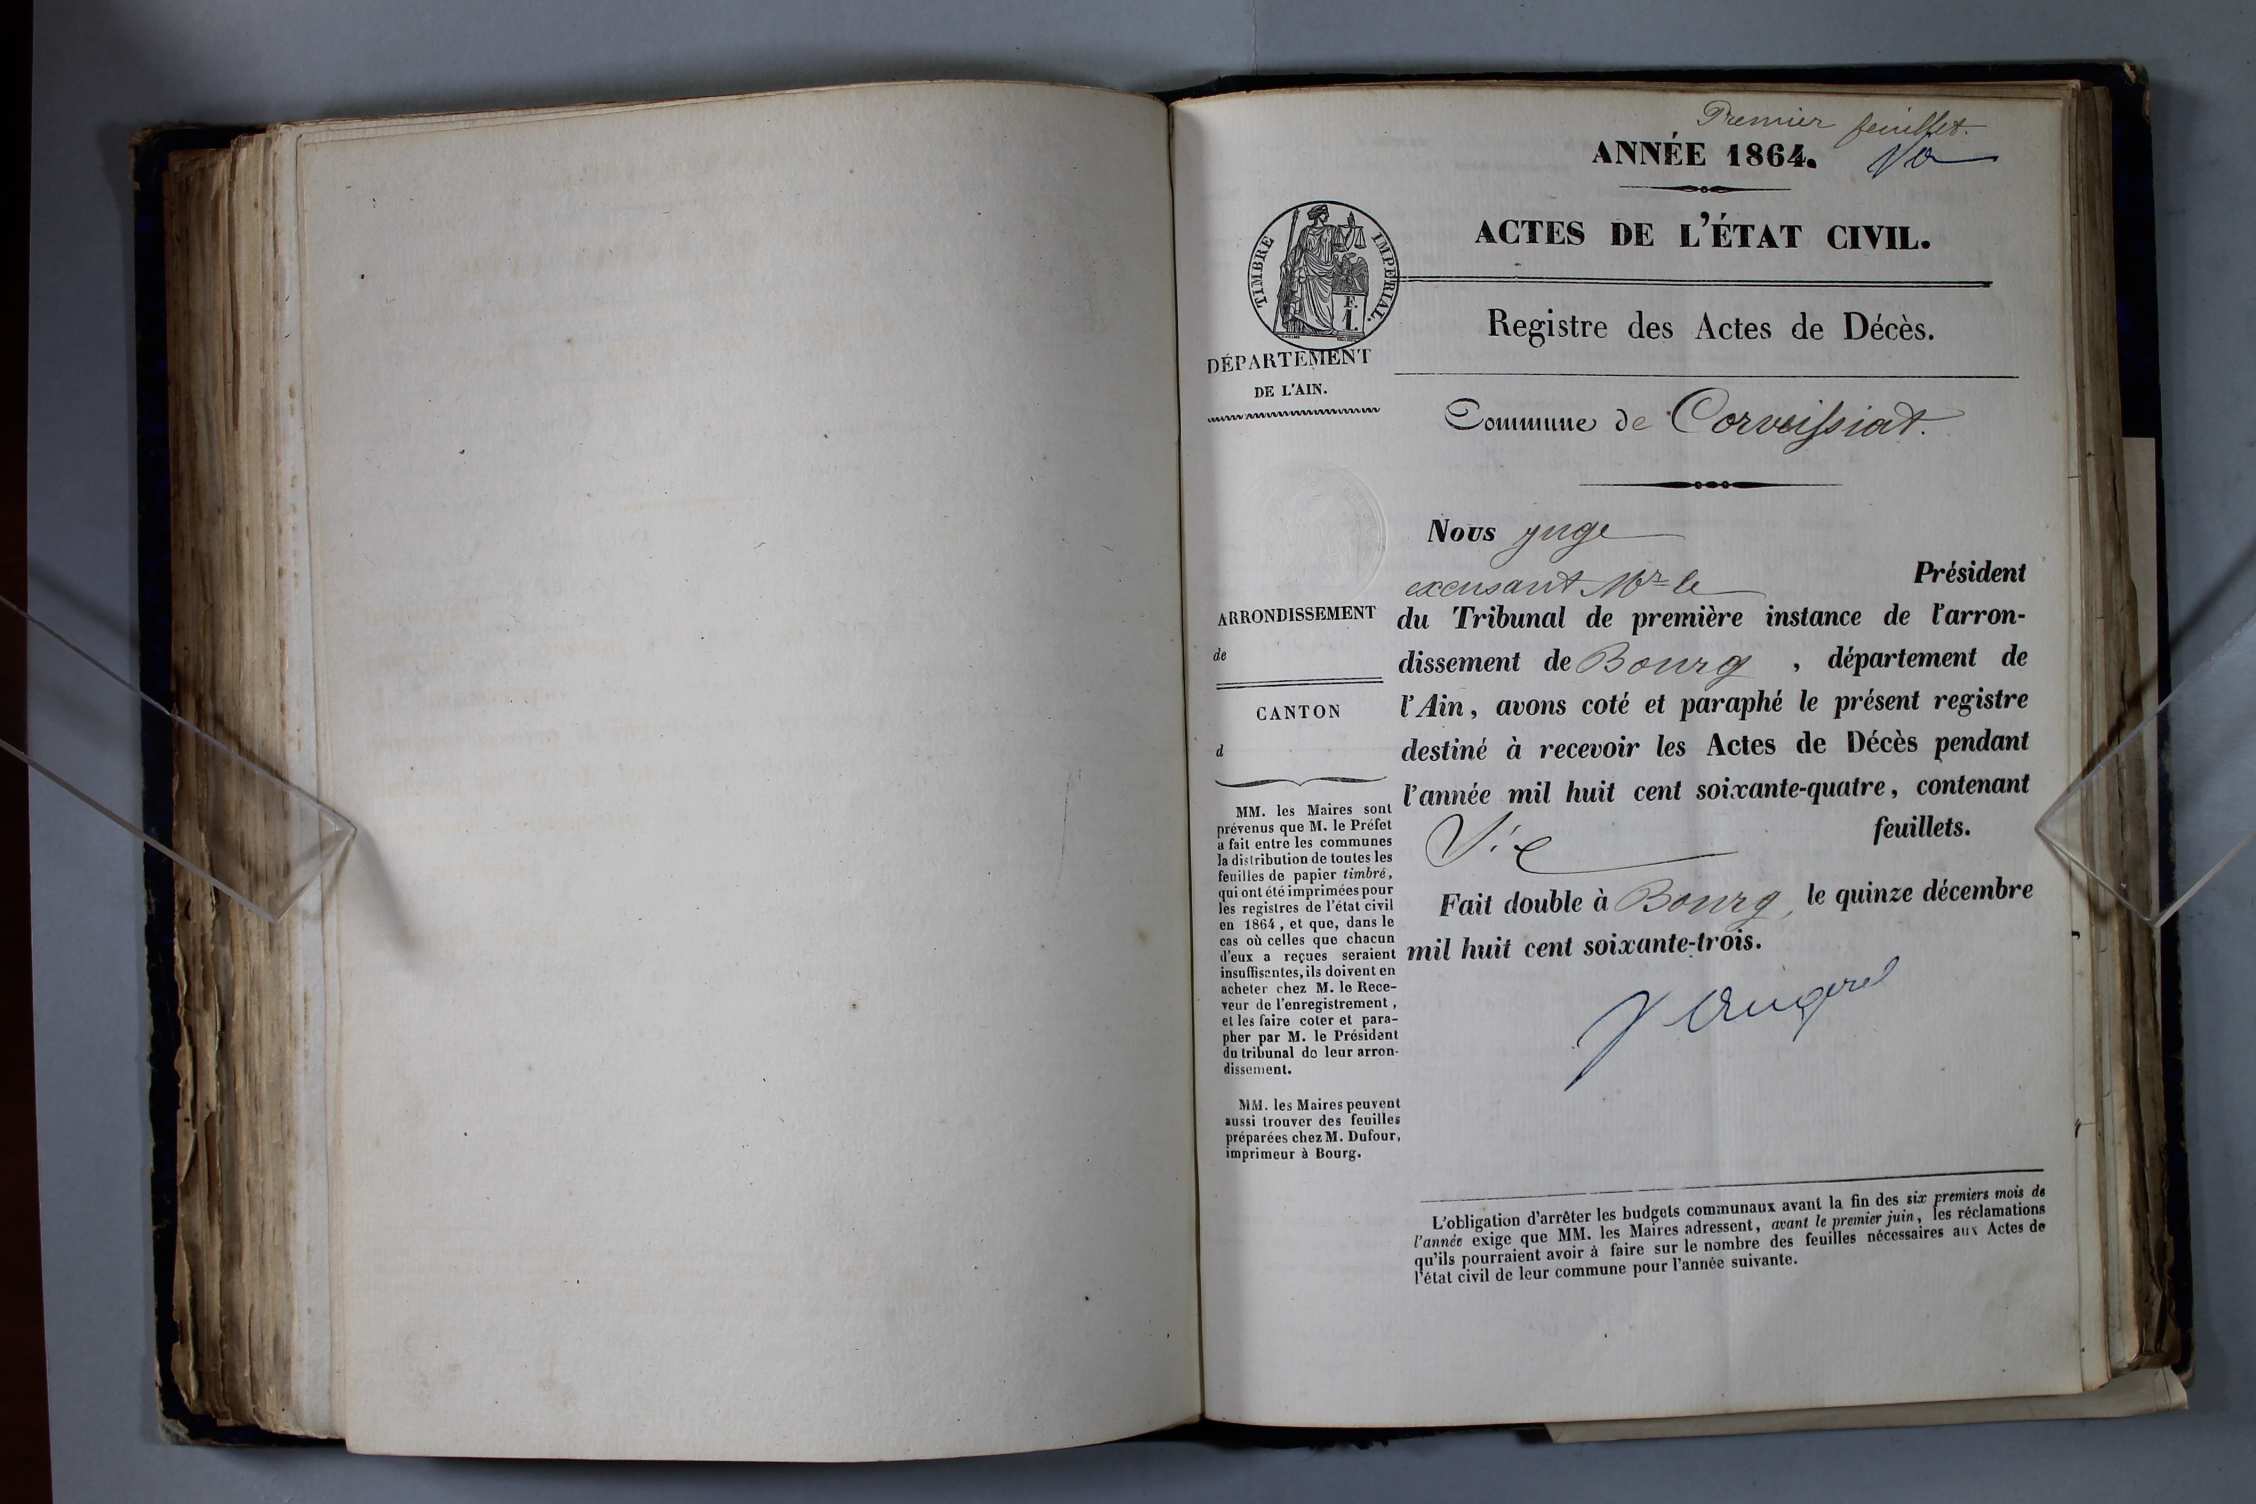 Premier feuillet.
ANNÉE 1864.
ACTES DE L'ÉTAT CIVIL.
TIMBRE IMPÉRIAL.
E.
I.
Registre des Actes de Décès.
DÉPARTEMENT
DE L'AIN.
Commune de Corveissiat.
Nous juge
excusant Mr le Président
du Tribunal de première instance de l'arron-
dissement de Bourg, département de
l'Ain, avons coté et paraphé le présent registre
destiné à recevoir les Actes de Décès pendant
l'année mil huit cent soixante-quatre, contenant
feuillets.
Fait double à Bourg, le quinze décembre
mil huit cent soixante-trois.
ARRONDISSEMENT
de
CANTON
d
MM. les Maires sont
prévenus que M. le Préfet
a fait entre les communes
la distribution de toutes les
feuilles de papier timbré,
qui ont été imprimées pour
les registres de l'état civil
en 1864, et que, dans le
cas où celles que chacun
d'eux a reçues seraient
insuffisantes, ils doivent en
acheter chez M. le Rece-
veur de l'enregistrement,
et les faire coter et para-
pher par M. le Président
du tribunal de leur arron-
dissement.
MM. les Maires peuvent
aussi trouver des feuilles
préparées chez M. Dufour,
imprimeur à Bourg.
L'obligation d'arrêter les budgets communaux avant la fin des six premiers mois de
l'année exige que MM. les Maires adressent, avant le premier juin, les réclamations
qu'ils pourraient avoir à faire sur le nombre des feuilles nécessaires aux Actes de
l'état civil de leur commune pour l'année suivante.